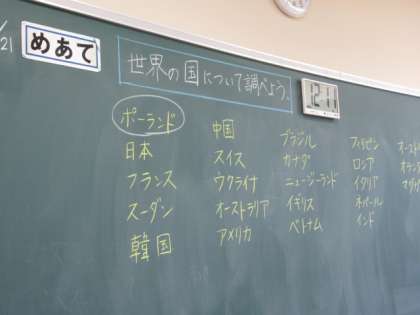 /21
めあて
世界の国について調べよう。
12:11
ポーランド
日本
フランス
スーダン
韓国
中国
スイス
ウクライナ
オーストラリア
アメリカ
ブラジル
カナダ
ニュージーランド
イギリス
ベトナム
フィリピン
ロシア
イタリア
ネパール
インド
オースト
オラン